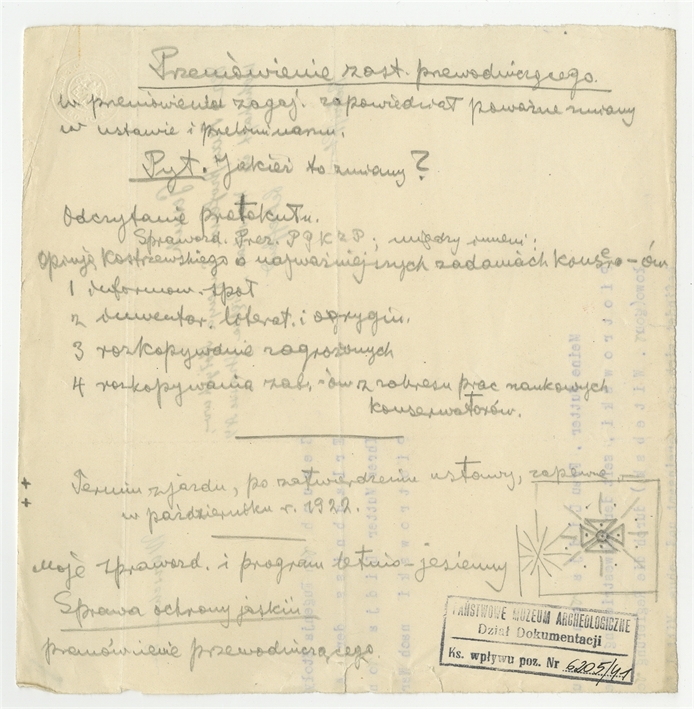 Przemówienie zast. przewodniczącego.
W przemówieniu zagaj. zapowiedział poważne zmiany
w ustawie i preliminarzu.
Pyt. Jakież to zmiany?
Odczytanie protokułu.
Sprawozd. Prez. PGKZP; między innemi:
Opinja Kostrzewskiego o najważniejszych zadaniach konserw-ów
1 informow. społ
2 inwentar. literat. i orygin.
3 rozkopywanie zagrożonych
4 rozkopywania zab.-ów z zakresu prac naukowych
konserwatorów.
Termin zjazdu, po zatwierdzeniu ustawy, zapewne
w październiku r. 1922.
Moje sprawozd. i program letnio-jesienny
Sprawa ochrony jaskiń
przemówienie przewodniczącego.
PAŃSTWOWE MUZEUM ARCHEOLOGICZNE
Dział Dokumentacji
Ks. wpływu poz. Nr 6205/41